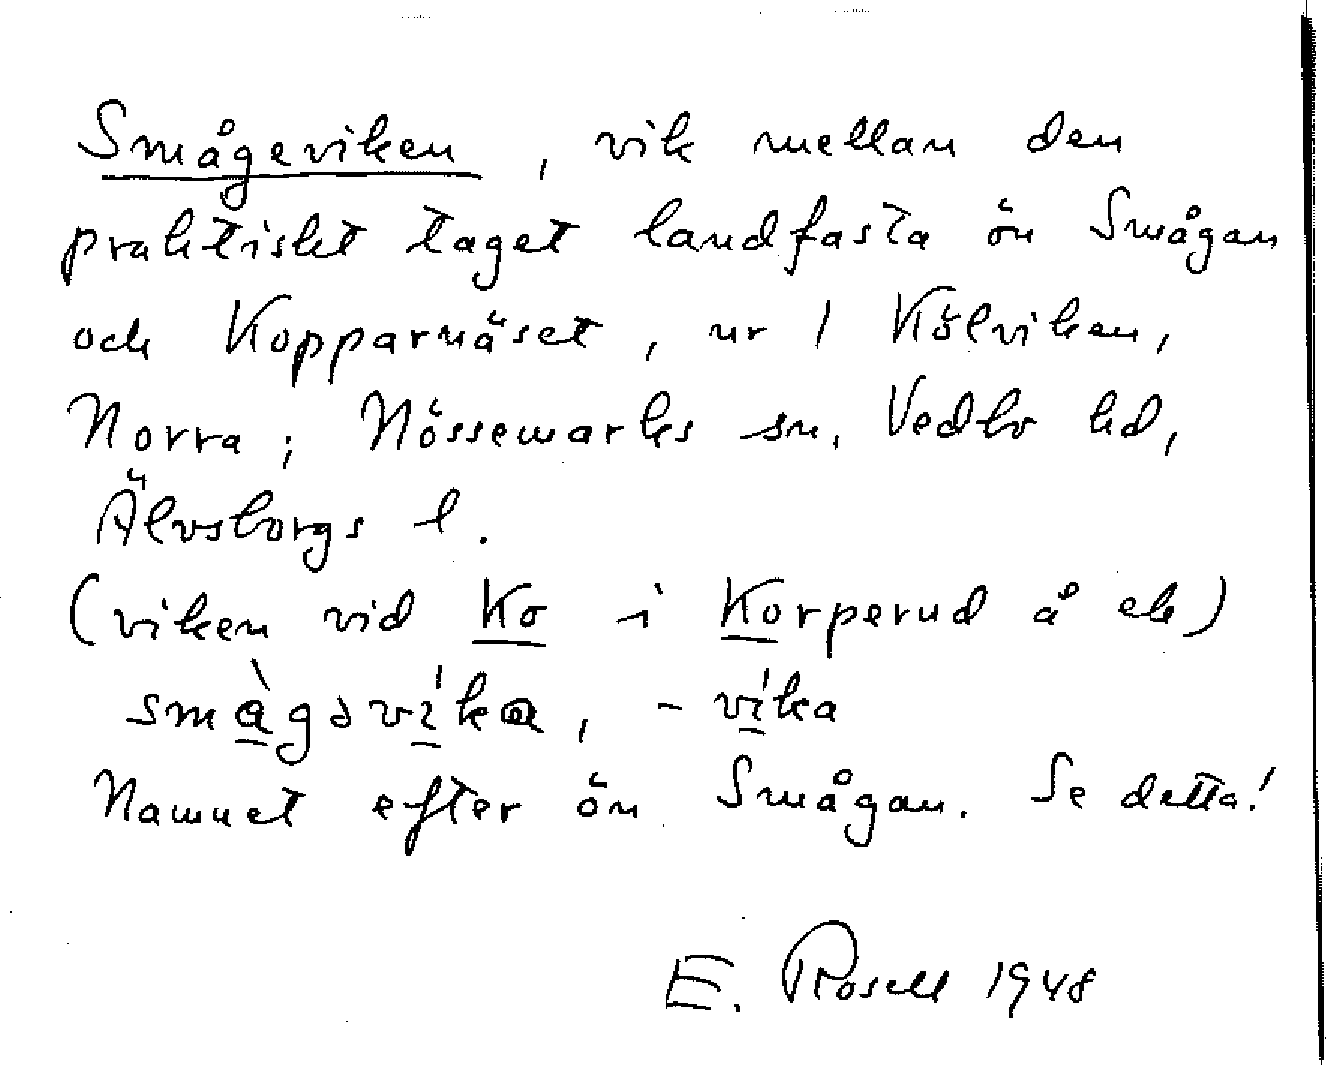 Smågeviken, vik mellan den
praktiskt taget landfasta ön Smågan
och Kopparnäset, nr 1 Kölviken,
Norra; Nössemarks sn, Vedbo hd,
Älvsborgs l.
(viken vid Ko i Korperud å ek)
småg̀əvíka, -víka
Namnet efter ön Smågan. Se detta!
E. Rosell 1948